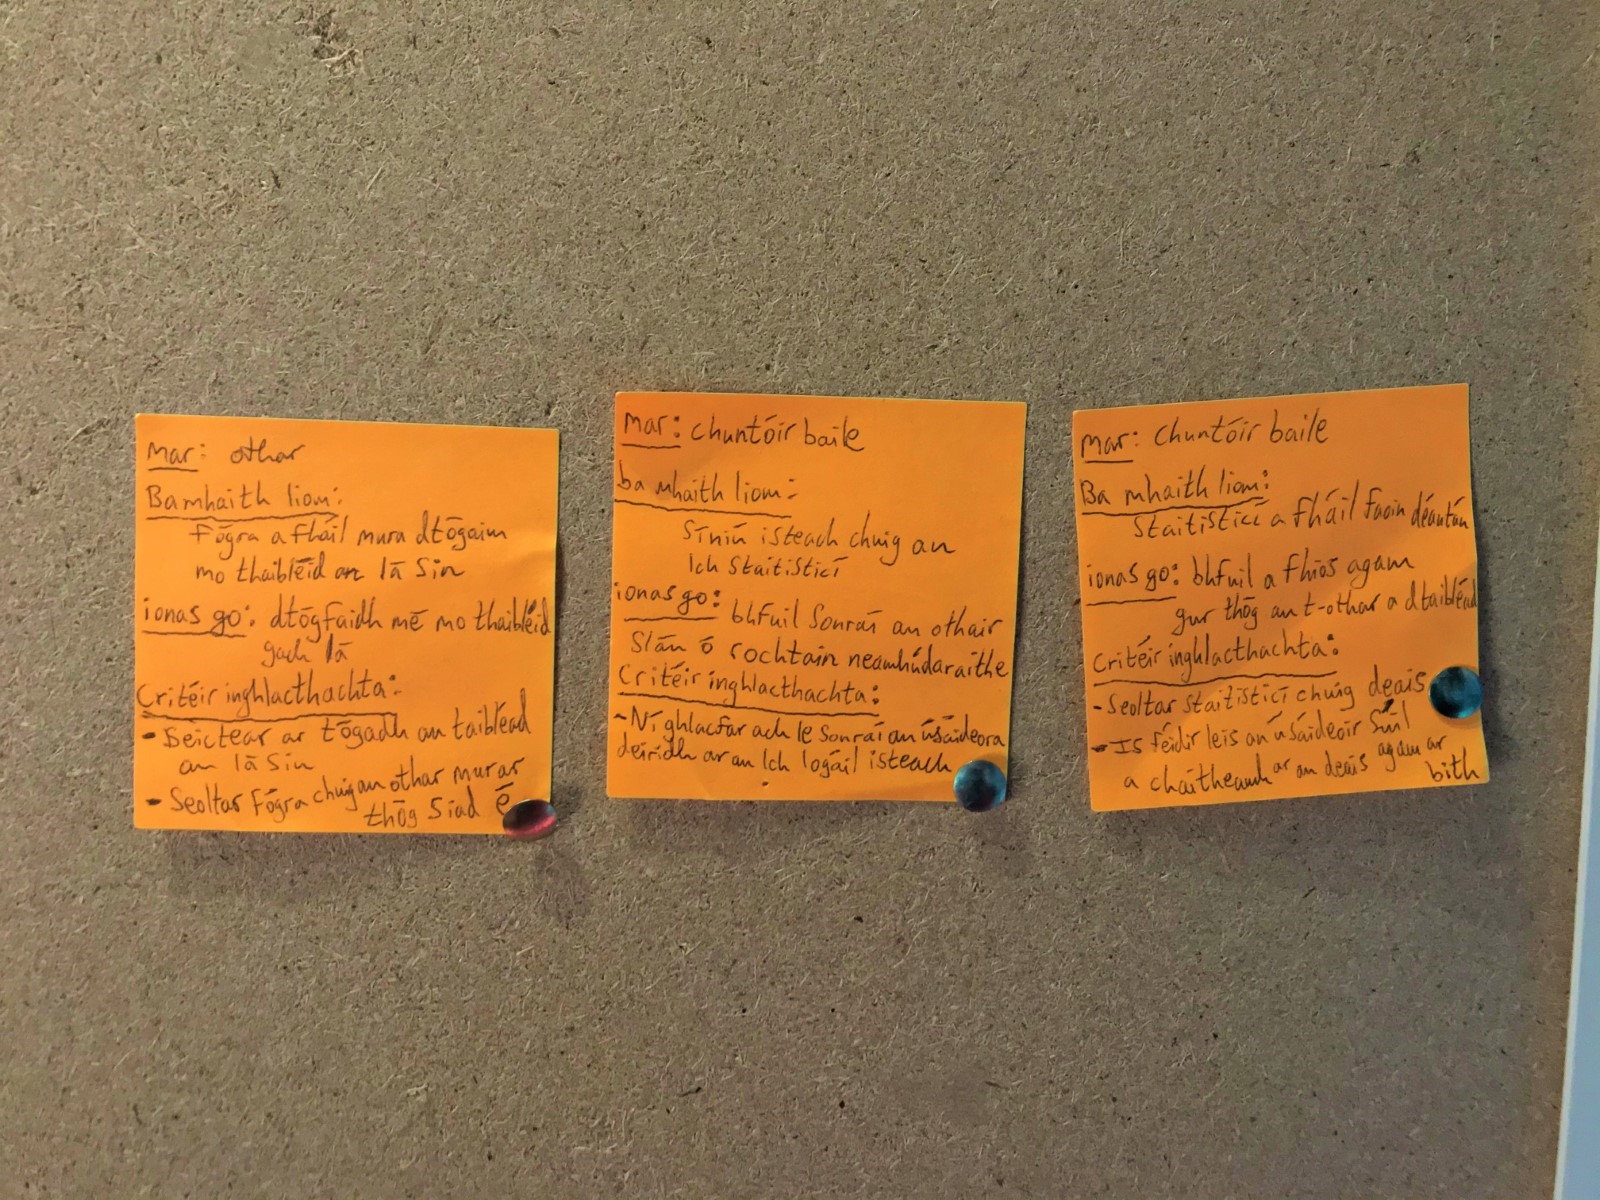 mar: othar
Ba mhaith liom:
Fógra a fháil mura dtógaim
mo thaibléid an lá sin
ionas go: dtógfaidh mé mo thaibléid
gach lá
Critéir inghlacthachta:
- Feictear ar tógadh an taibléad
an lá sin
- Seoltar fógra chuig an othar mur ar
thóg siad é
mar: chuntóir baile
ba mhaith liom:
Síniú isteach chuig an
lch staitisticí
ionas go: bhfuil sonraí an othair
slán ó rochtain neamhúdaraithe
Critéir inghlacthachta:
- Ní ghlacfar ach le sonraí an úsáideora
deiridh ar an lch logáil isteach
mar: chuntóir baile
Ba mhaith liom:
Staitisticí a fháil faoin déantán
ionas go: bhfuil a fhios agam
gur thóg an t-othar a dtaibléad
Critéir inghlacthachta:
- Seoltar staitisticí chuig deais
- Is féidir leis an úsáideoir súil
a chaitheamh ar an deais agam ar
bith